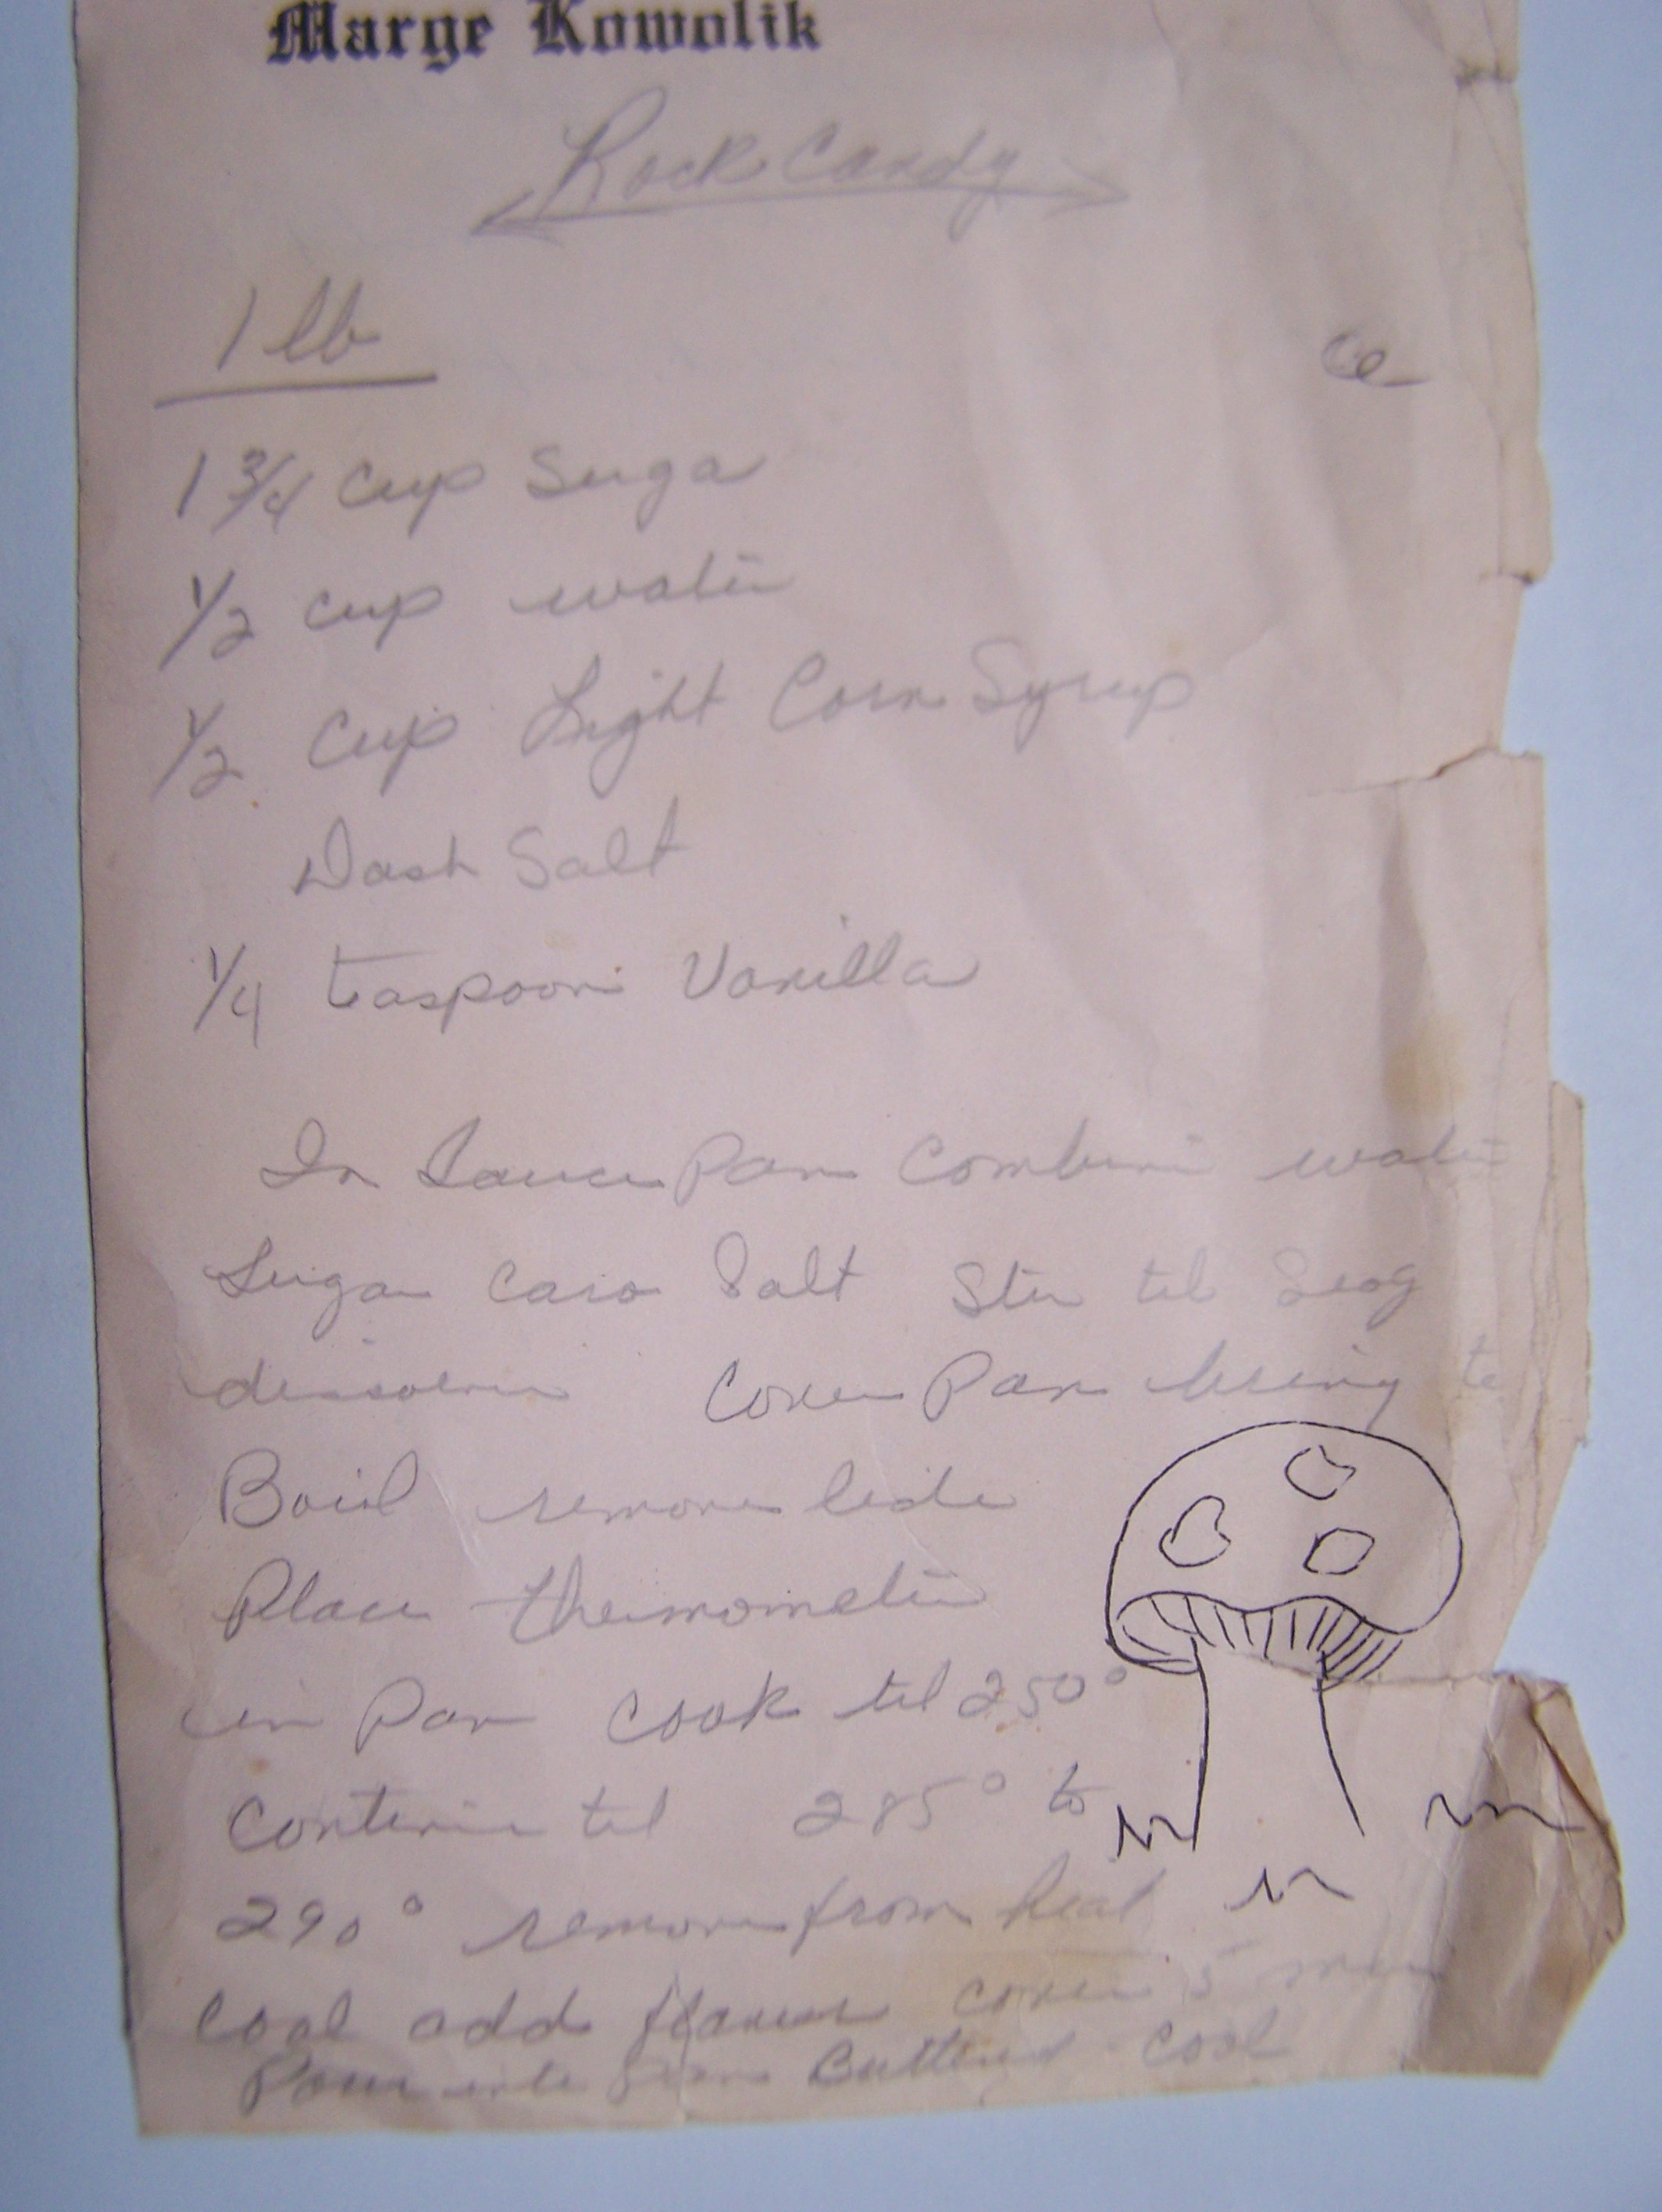 Marge Kowolik
Rock Candy
1 lb
1 3/4 cup Suga
1/2 cup water
1/2 cup Light Corn Syrup
Dash Salt
1/4 teaspoon Vanilla
In Sauce Pan Combine water
Sugar Caro Salt Stir til
Cover Pan bring to
Boil remove lide
Place thermometer
in Pan Cook til 250°
Continue til 285° to
290° remove from heat
Cool add flavor cover 5 min
Pour into Pan Buttered - Cool